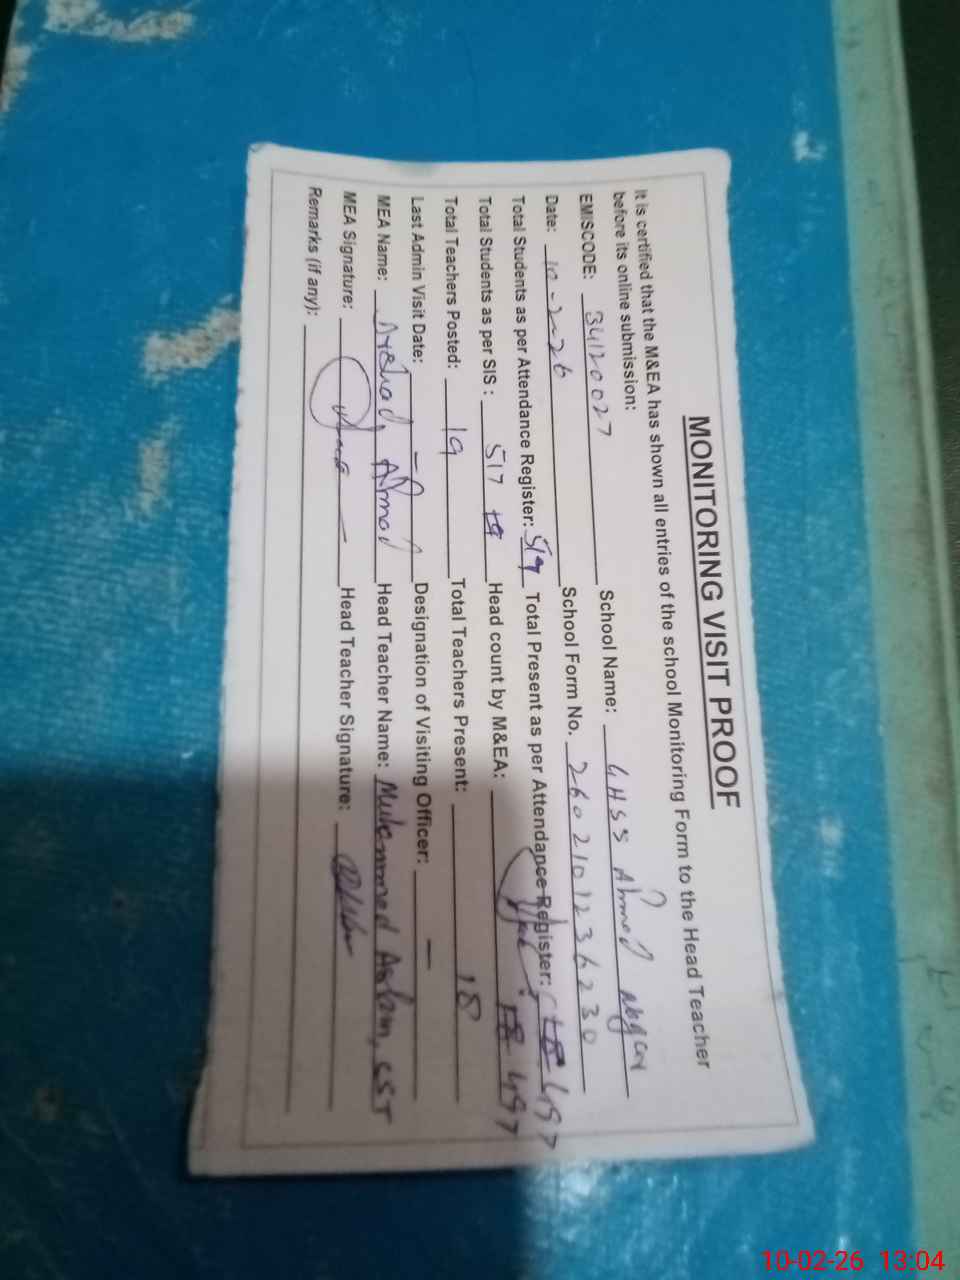 MONITORING VISIT PROOF
It is certified that the M&EA has shown all entries of the school Monitoring Form to the Head Teacher
before its online submission:
EMISCODE: 34120027 School Name: GHSS Ahmad Nagar
Date: 10-2-26 School Form No. 2602101236230
Total Students as per Attendance Register: 519 Total Present as per Attendance Register: 18 497
Total Students as per SIS: 517 19 Head count by M&EA: 18 497
Total Teachers Posted: 19 Total Teachers Present: 18
Last Admin Visit Date: Designation of Visiting Officer: –
MEA Name: Arshad Ahmad Head Teacher Name: Muhammad Aslam, SST
MEA Signature: Head Teacher Signature:
Remarks (if any):
10-02-26 13:04